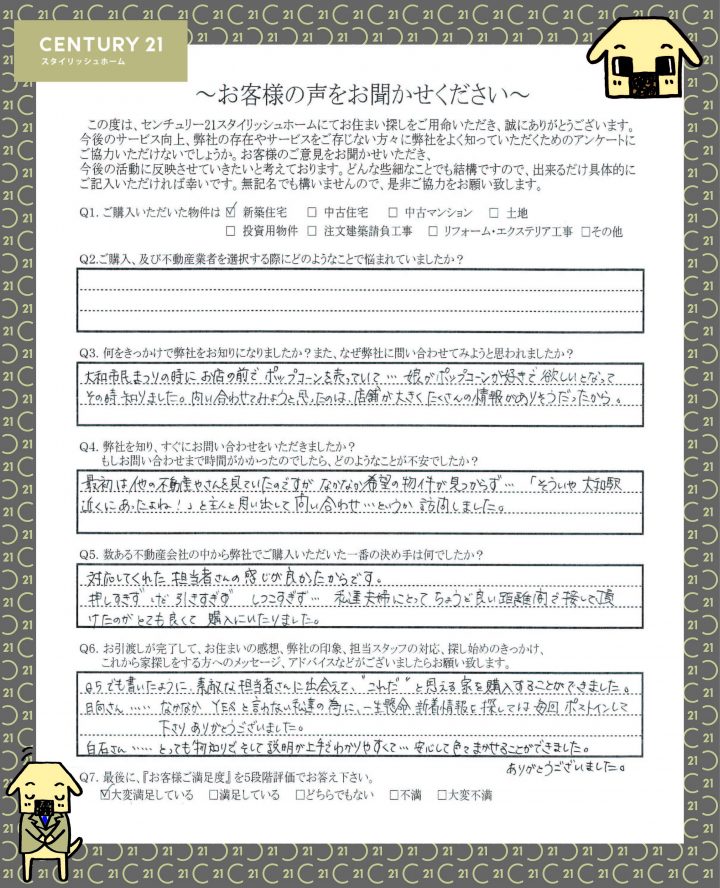 CENTURY 21
スタイリッシュホーム
～お客様の声をお聞かせください～
この度は、センチュリー21スタイリッシュホームにてお住まい探しをご用命いただき、誠にありがとうございます。
今後のサービス向上、弊社の存在やサービスをご存じない方々に弊社をよく知っていただくためのアンケートに
ご協力いただけないでしょうか。お客様のご意見をお聞かせいただき、
今後の活動に反映させていきたいと考えております。どんな些細なことでも結構ですので、出来るだけ具体的に
ご記入いただければ幸いです。無記名でも構いませんので、是非ご協力をお願い致します。
Q1. ご購入いただいた物件は ☑ 新築住宅 □ 中古住宅 □ 中古マンション □ 土地
□ 投資用物件 □ 注文建築請負工事 □ リフォーム・エクステリア工事 □その他
Q2.ご購入、及び不動産業者を選択する際にどのようなことで悩まれていましたか？
Q3. 何をきっかけで弊社をお知りになりましたか？また、なぜ弊社に問い合わせてみようと思われましたか？
大和市民まつりの時にお店の前でポップコーンを売っていて… 娘がポップコーンが好きで欲しいとなって
その時知りました。問い合わせてみようと思ったのは、店舗が大きくたくさんの情報がありそうだったから。
Q4. 弊社を知り、すぐにお問い合わせをいただきましたか？
もしお問い合わせまで時間がかかったのでしたら、どのようなことが不安でしたか？
最初は他の不動産やさんを見ていたのですが なかなか希望の物件が見つからず… 「そういや 大和駅
近くにあったよね！」と主人と思い出して 問い合わせ…というか 訪問しました。
Q5. 数ある不動産会社の中から弊社でご購入いただいた一番の決め手は何でしたか？
対応してくれた 担当者さんの感じが良かったからです。
押しすぎず 引きすぎず しつこすぎず… 私達夫婦にとって ちょうど良い距離間で接して頂
けたのがとても良くて 購入にいたりました。
Q6. お引渡しが完了して、お住まいの感想、弊社の印象、担当スタッフの対応、探し始めのきっかけ、
これから家探しをする方へのメッセージ、アドバイスなどがございましたらお願い致します。
Q5でも書いたように、素敵な担当者さんに出会えて、"これだ"と思える家を購入することができました。
日向さん…… なかなか YESと言わない私達の為に、一生懸命 新着情報を探しては毎回 ポストインして
下さりありがとうございました。
白石さん…… とっても物知りでそして説明が上手でわかりやすくて… 安心して色々まかせることができました。
ありがとうございました。
Q7. 最後に、『お客様ご満足度』を5段階評価でお答え下さい。
☑大変満足している □満足している □どちらでもない □不満 □大変不満